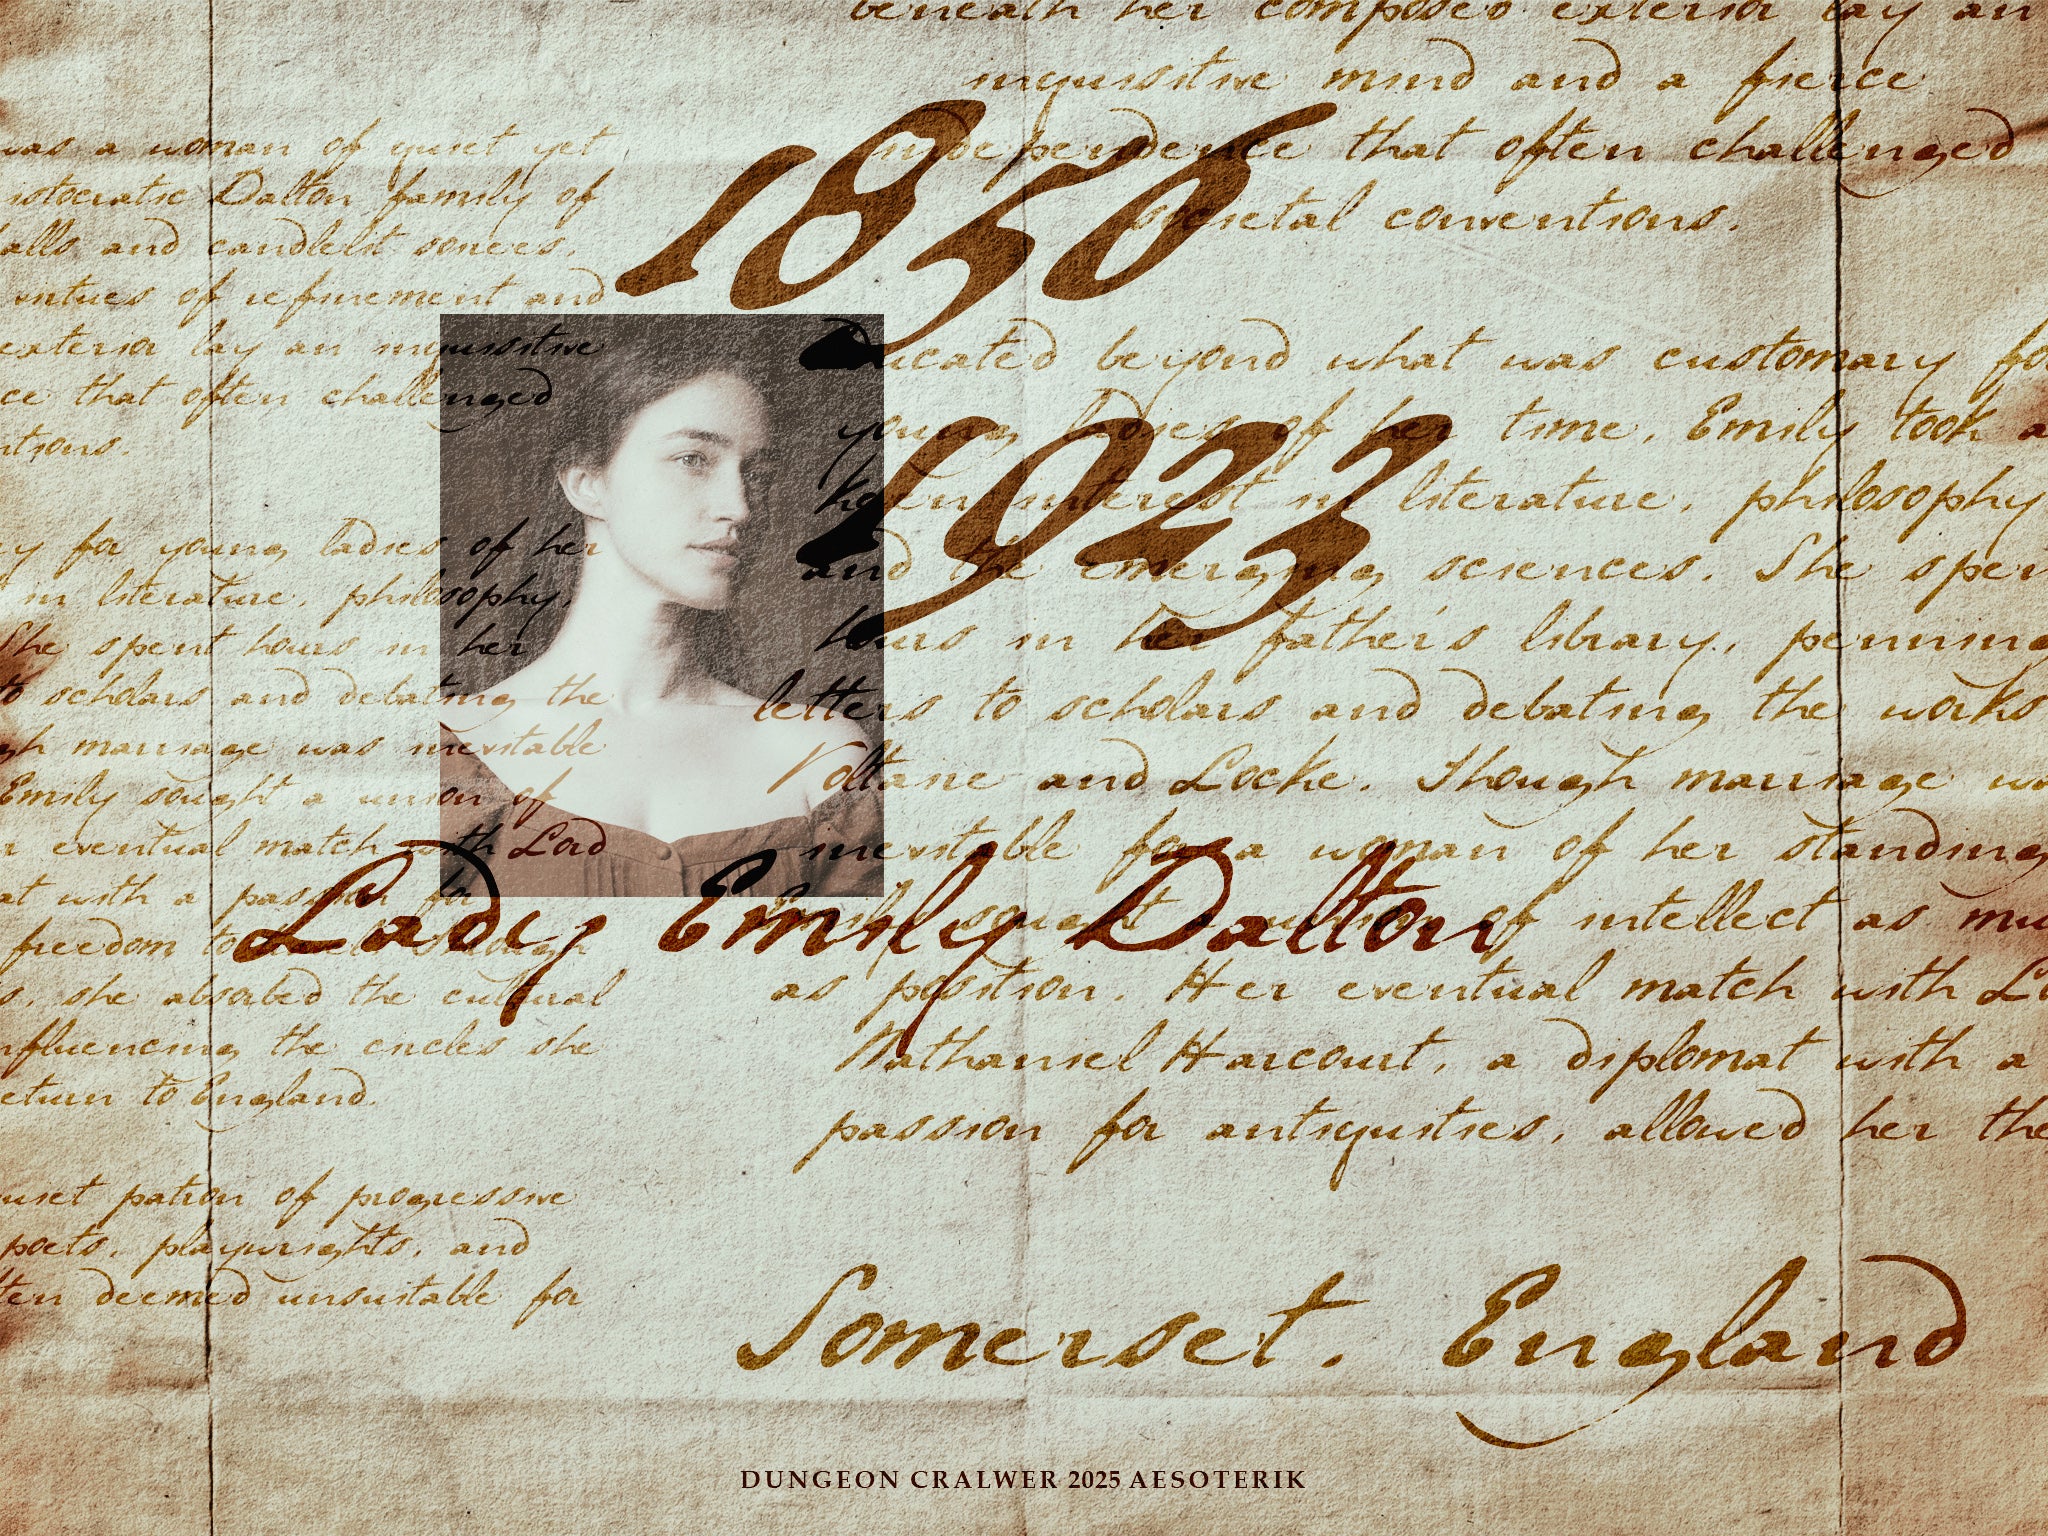 beneath her composed exterior lay an
inquisitive mind and a fierce
independence that often challenged
societal conventions.
1856
1923
was a woman of quiet yet
istocratic Dalton family of
alls and candlelit soirees.
virtues of refinement and
exterior lay an inquisitive
ce that often challenged
ntions.
ry for young ladies of her
in literature, philosophy,
She spent hours in her
to scholars and debating the
gh marriage was inevitable
Emily sought a union of
r eventual match with Lord
at with a passion for
freedom to travel. Through
s, she absorbed the cultural
nfluencing the circles she
eturn to England.
uiet patron of progressive
poets, playwrights, and
ten deemed unsuitable for
Educated beyond what was customary fo
young ladies of her time, Emily took a
keen interest in literature, philosophy
and the emerging sciences. She spen
hours in her father's library, penning
letters to scholars and debating the works
Voltaire and Locke. Though marriage wa
inevitable for a woman of her standing
Emily sought a union of intellect as mu
as position. Her eventual match with Lo
Nathaniel Harcourt, a diplomat with a
passion for antiquities, allowed her the
Lady Emily Dalton
Somerset, England
DUNGEON CRALWER 2025 AESOTERIK